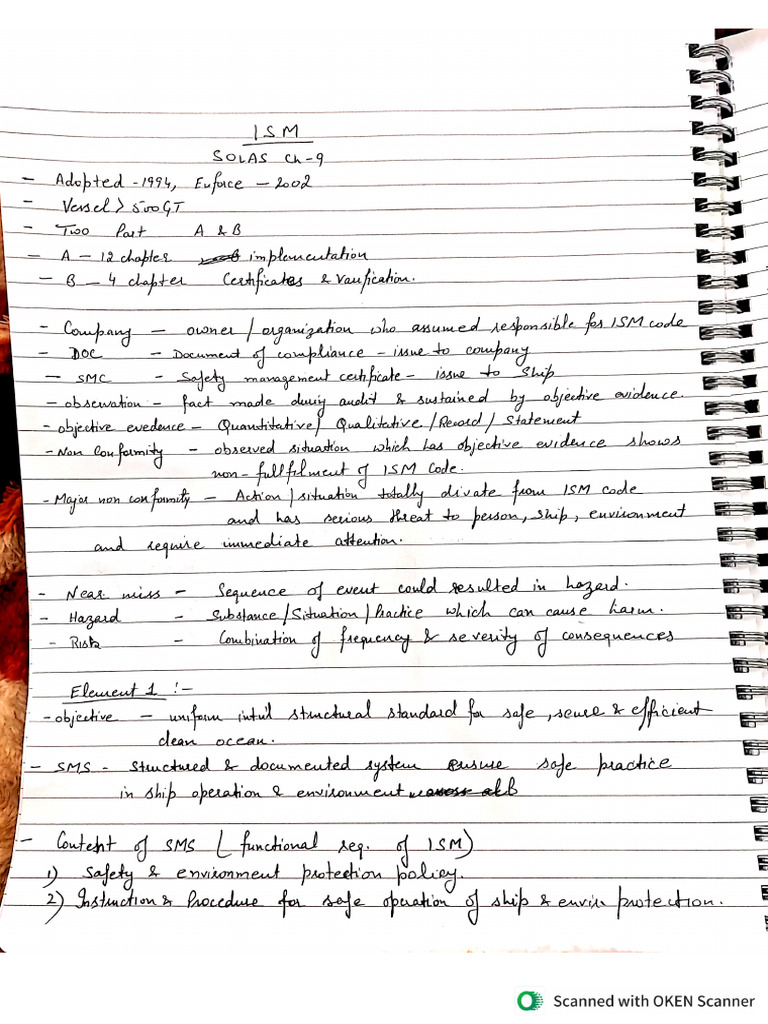 ISM
SOLAS Ch-9
- Adopted -1994, Enforce - 2002
- Vessel > 500GT
- Two Part A & B
- A - 12 chapter implementation
- B - 4 chapter Certificates & Varification.
- Company - owner / organization who assumed responsible for ISM code
- DOC - Document of compliance - issue to company
- SMC - Safety management certificate - issue to ship
- observation - fact made during audit & sustained by objective evidence.
- objective evedence - Quantitative / Qualitative / Record / Statement
- Non Conformity - observed situation which has objective evidence shows
non-fullfilment of ISM Code.
- Major non conformity - Action / situation totally divate from ISM code
and has serious threat to person, ship, environment
and require immediate attention.
- Near miss - Sequence of event could resulted in hazard.
- Hazard - Substance / Situation / Practice which can cause harm.
- Risk - Combination of frequency & severity of consequences
Element 1 :-
- objective - uniform int'l structural standard for safe, secure & efficient
clean ocean.
- SMS - Structured & documented system ensure safe practice
in ship operation & environment
- Content of SMS ( functional req. of ISM)
1) Safety & environment protection policy.
2) Instruction & Procedure for safe operation of ship & envir. protection.
Scanned with OKEN Scanner